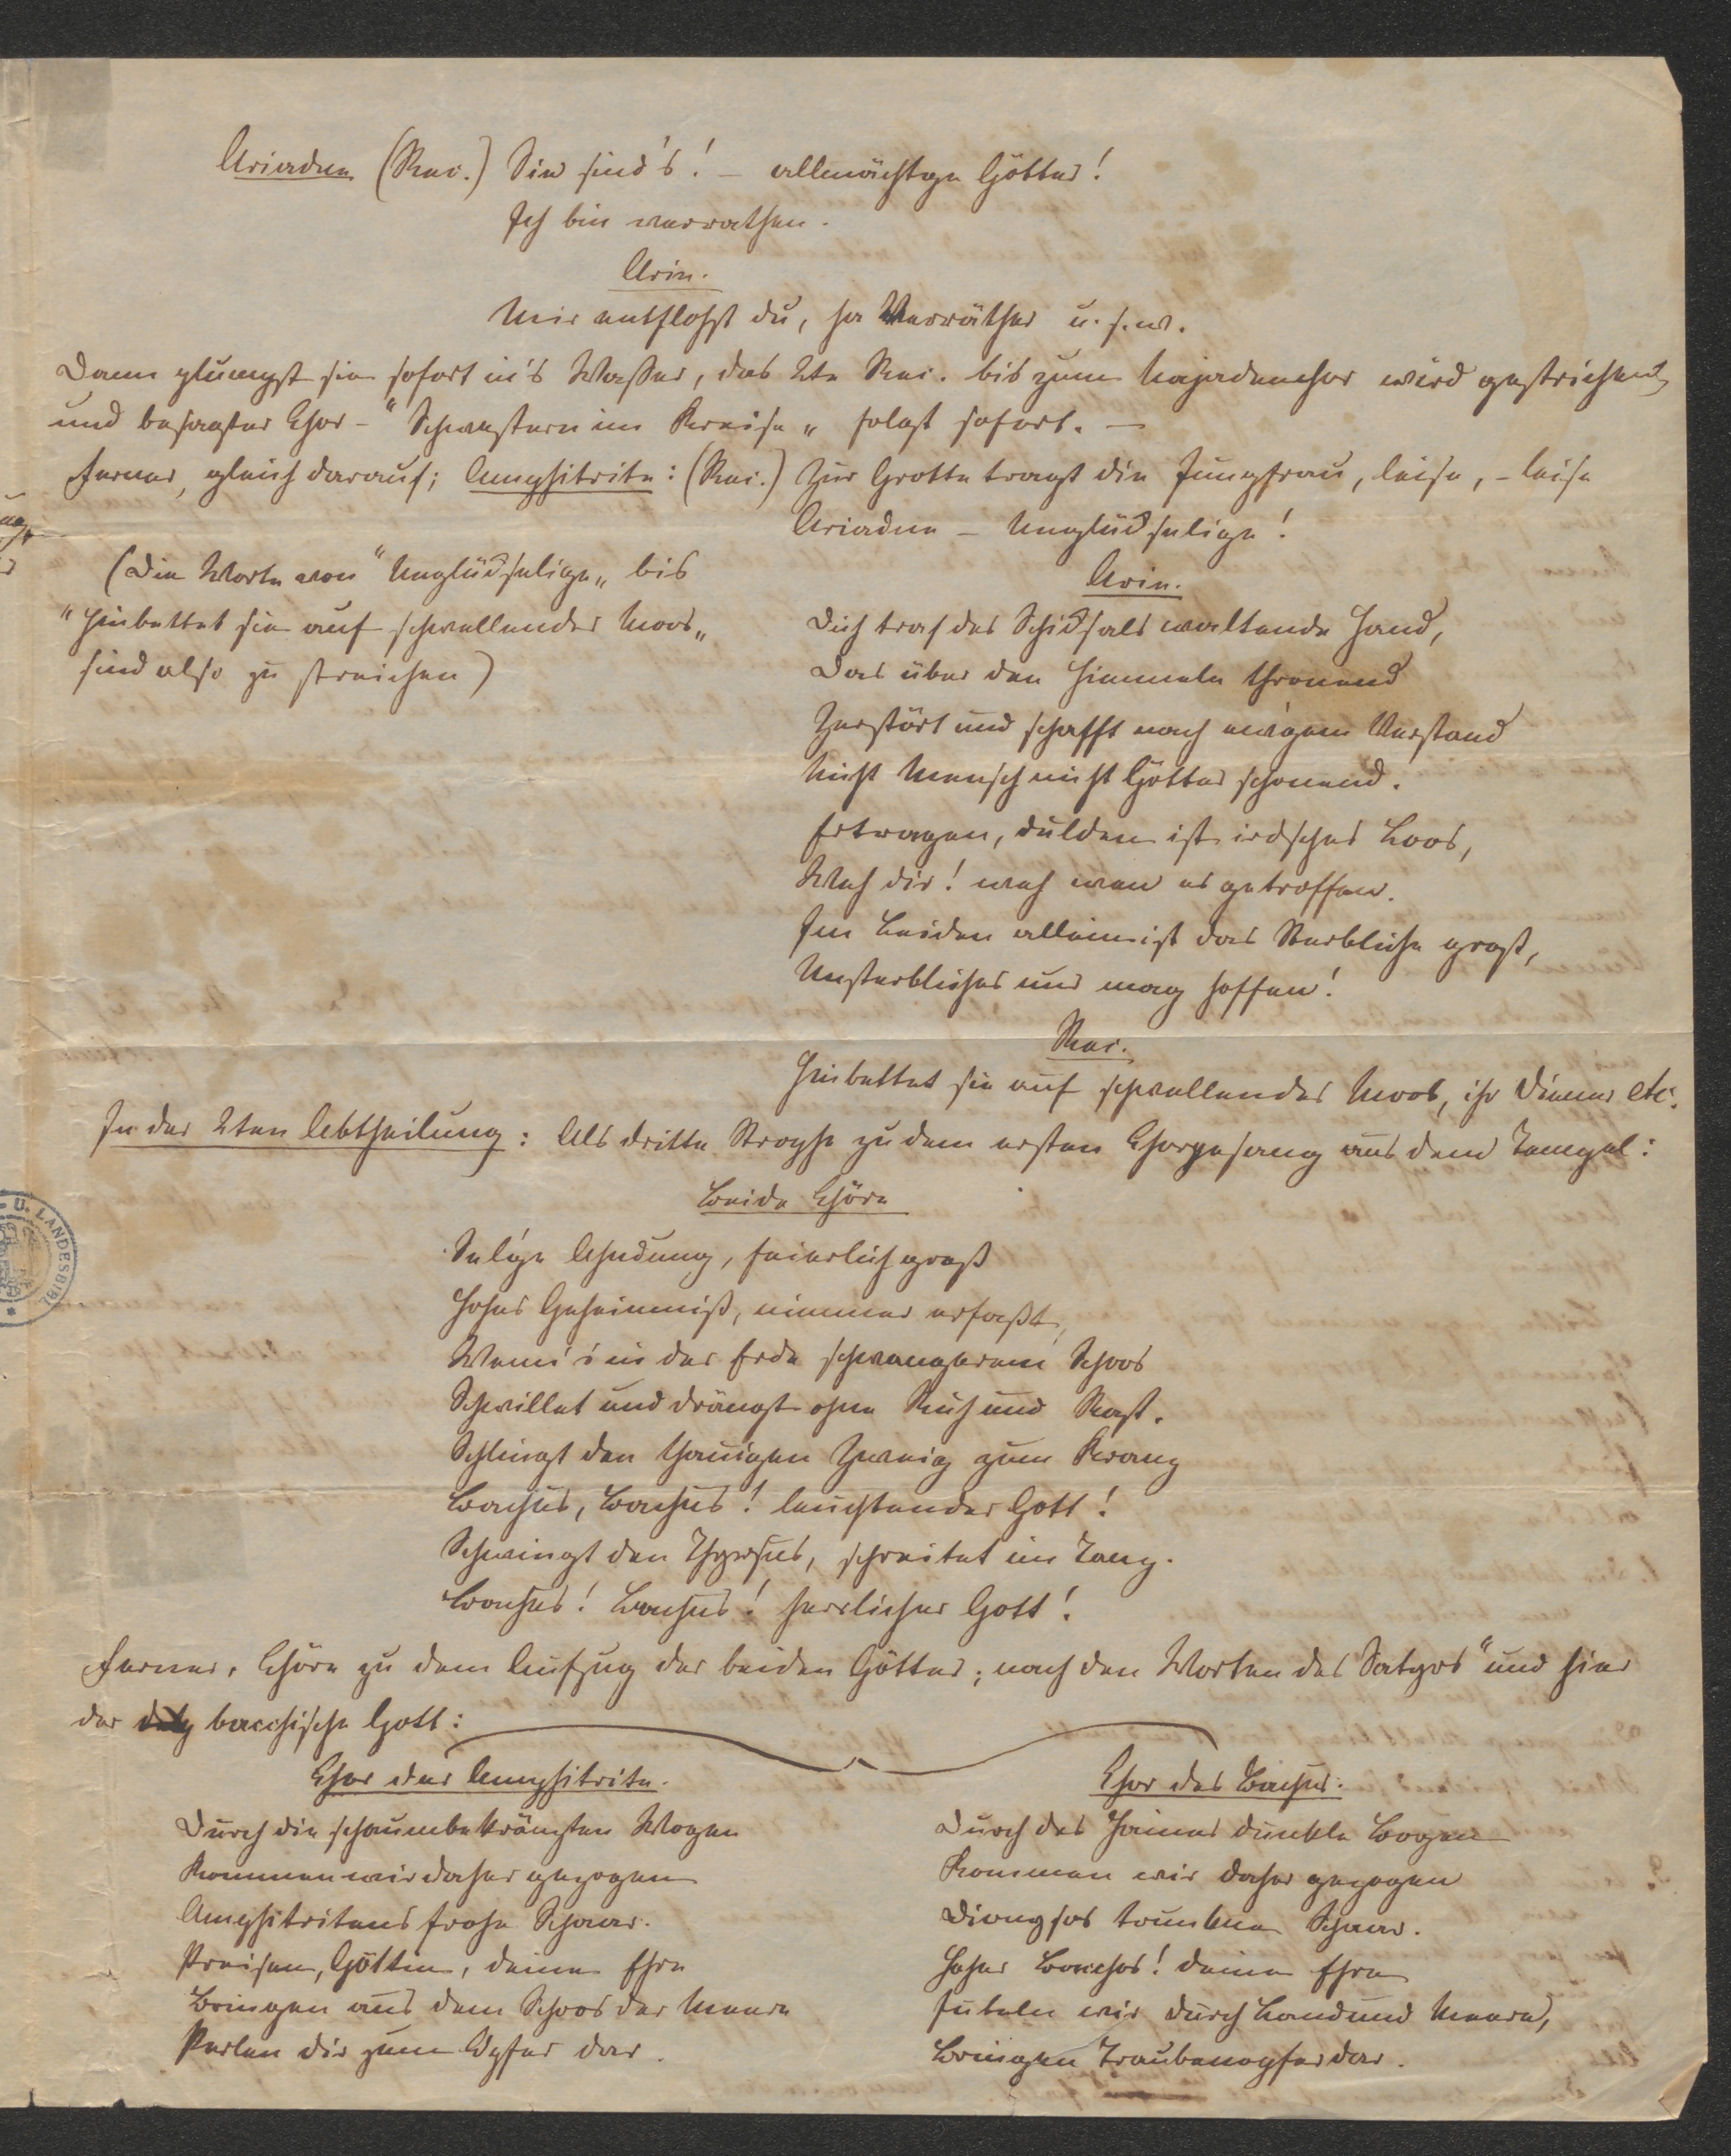 Ariadne (Rec.) Sie sind's! – allmächtge Götter!
Ich bin verrathen.
Arie.
Mir entflohst du, ha Verräther u. s. w.
Dann plumpst sie sofort in's Wasser, das 2te Rec. bis zum Najadenchor wird gestrichen,
und besagter Chor – "Schwestern im Kreise" folgt sofort. –
Ferner, gleich darauf; Amphitrite: (Rec.) Zur Grotte tragt die Jungfrau, leise, – leise
Ariadne – Unglückselige!
(Die Worte von "Unglückselige" bis
"Hinbettet sie auf schwellender Moos"
sind also zu streichen)
Arie.
Dich traf des Schicksals waltende Hand,
Das über den Himmeln thronend
Zerstört und schafft nach ewigem Verstand
Nicht Mensch nicht Götter schonend.
Ertragen, dulden ist irdsches Loos,
Weh dir! weh wen es getroffen.
Im Leiden allein ist das Sterbliche groß,
Unsterbliches nur mag hoffen!
Rec.
Hinbettet sie auf schwellendes Moos, ihr Diener etc.
In der 2ten Abtheilung: Als dritte Strophe zu dem ersten Chorgesang aus dem Tempel:
Beide Chöre
Sel'ge Ahndung, feierlich groß
Hohes Geheimniß, nimmer erfaßt,
Wenn's in der Erde schwangerem Schoos
Schwillet und drängt ohne Ruh und Rast.
Schlingt den thauigen Zweig zum Kranz
Bachus, Bachus! leuchtender Gott!
Schwingt den Thyrsus, schreitet im Tanz.
Bachus! Bachus! herrlicher Gott!
Ferner, Chöre zu dem Aufzug der beiden Götter; nach den Worten des Satyrs "und hier
der bacchische Gott:
Chor der Amphitrite.
Durch die schaumbekränzten Wogen
Kommen wir daher gezogen
Amphitritens frohe Schaar.
Preisen, Göttin, deine Ehre
Bringen aus dem Schoos der Meere
Perlen dir zum Opfer dar.
Chor des Bachus.
Durch des Haines dunkle Bogen
Kommen wir daher gezogen
Dionysos trunkne Schaar.
Hoher Bacchos! deine Ehre
Jubeln wir durch Land und Meere,
Bringen Traubenopfer dar.
U. LANDESBIBL